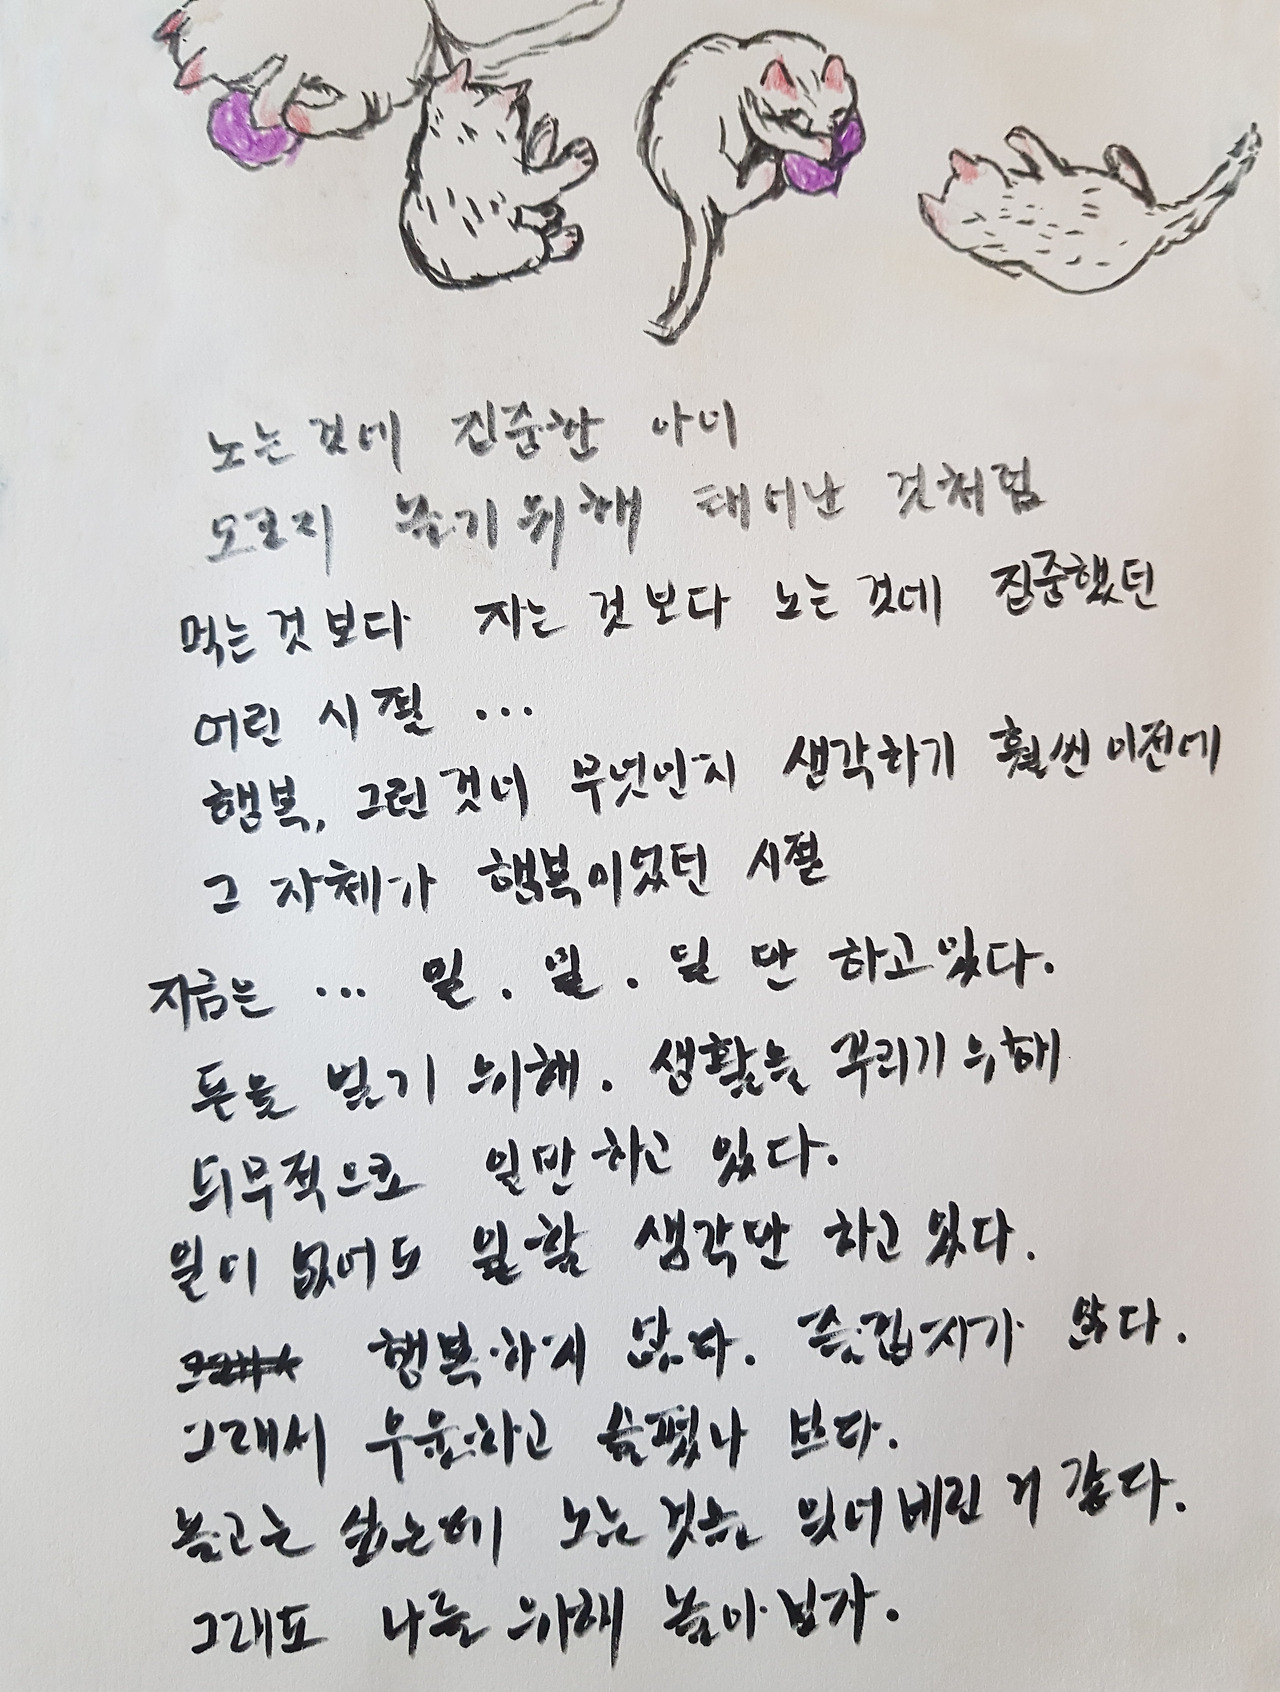 노는 것에 집중한 아이
오로지 놀기 위해 태어난 것처럼
먹는 것 보다 자는 것 보다 노는 것에 집중했던
어린 시절 ...
행복, 그런 것이 무엇인지 생각하기 훨씬 이전에
그 자체가 행복이었던 시절
지금은 ... 일. 일. 일 만 하고 있다.
돈을 벌기 위해. 생활을 꾸리기 위해
의무적으로 일만 하고 있다.
일이 없어도 일할 생각만 하고 있다.
행복하지 않다. 즐겁지가 않다.
그래서 우울하고 슬펐나 보다.
놀고는 싶은데 노는 것을 잊어버린 거 같다.
그래도 나를 위해 놀아보자.